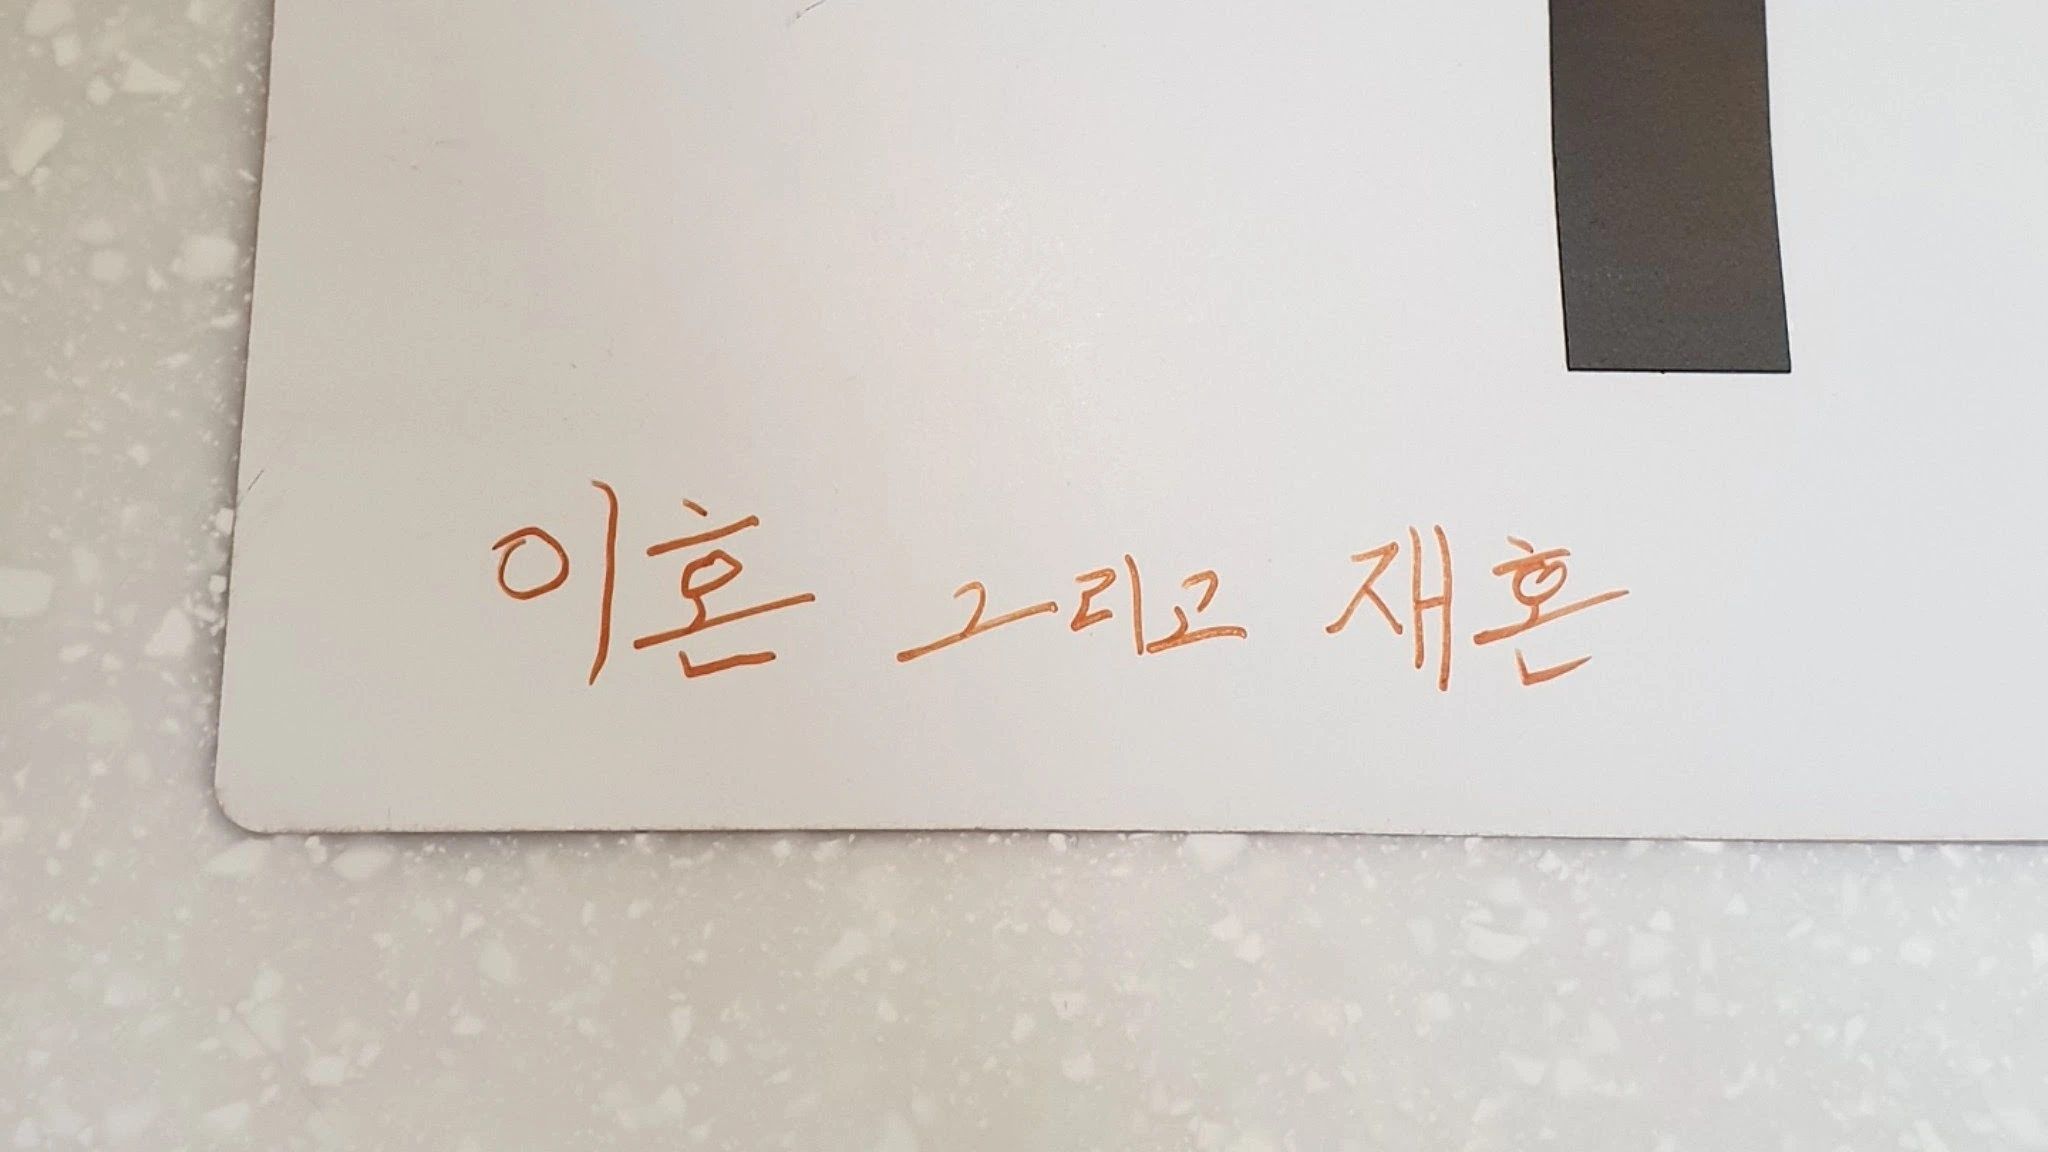 이혼 그리고 재혼